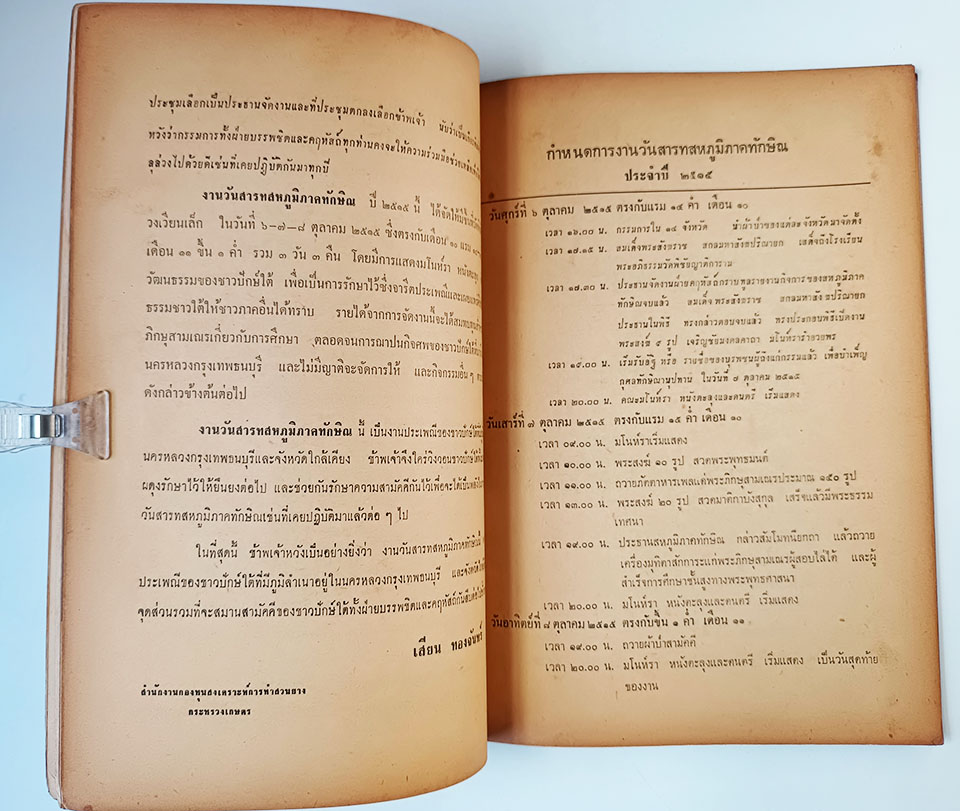 ประชุมเลือกเป็นประธานจัดงานและที่ประชุมตกลงเลือกข้าพเจ้า นับว่าเป็น
หวังว่ากรรมการทั้งฝ่ายบรรพชิตและคฤหัสถ์ทุกท่านคงจะให้ความร่วมมือช่วย
ลุล่วงไปด้วยดีเช่นที่เคยปฏิบัติกันมาทุกปี
งานวันสารทสหภูมิภาคทักษิณ ปี ๒๕๑๕ นี้ ได้จัดให้มีขึ้น
วงเวียนเล็ก ในวันที่ ๖-๗-๘ ตุลาคม ๒๕๑๕ ซึ่งตรงกับเดือน ๑๐ แรม
เดือน ๑๑ ขึ้น ๑ ค่ำ รวม ๓ วัน ๓ คืน โดยมีการแสดงมโนห์รา
วัฒนธรรมของชาวปักษ์ใต้ เพื่อเป็นการรักษาไว้ซึ่งจารีตประเพณีและ
ธรรมชาวใต้ให้ชาวภาคอื่นได้ทราบ รายได้จากการจัดงานนี้จะได้สมทบทุน
ภิกษุสามเณรเกี่ยวกับการศึกษา ตลอดจนการฌาปนกิจศพของชาวปักษ์ใต้
นครหลวงกรุงเทพธนบุรี และไม่มีญาติจะจัดการให้ และกิจกรรมอื่น ๆ
ดังกล่าวข้างต้นต่อไป
งานวันสารทสหภูมิภาคทักษิณ นี้ เป็นงานประเพณีของชาวปักษ์ใต้
นครหลวงกรุงเทพธนบุรีและจังหวัดใกล้เคียง ข้าพเจ้าจึงใคร่วิงวอนชาวปักษ์ใต้
ผดุงรักษาไว้ให้ยืนยงต่อไป และช่วยกันรักษาความสามัคคีกันไว้เพื่อจะได้
วันสารทสหภูมิภาคทักษิณเช่นที่เคยปฏิบัติมาแล้วต่อ ๆ ไป
ในที่สุดนี้ ข้าพเจ้าหวังเป็นอย่างยิ่งว่า งานวันสารทสหภูมิภาคทักษิณ
ประเพณีของชาวปักษ์ใต้ที่มีภูมิลำเนาอยู่ในนครหลวงกรุงเทพธนบุรี และจังหวัด
จุดส่วนรวมที่จะสมานสามัคคีของชาวปักษ์ใต้ทั้งฝ่ายบรรพชิตและคฤหัสถ์กันสืบต่อไป
เสียน ทองจันทร์
สำนักงานกองทุนสงเคราะห์การทำสวนยาง
กระทรวงเกษตร
กำหนดการงานวันสารทสหภูมิภาคทักษิณ
ประจำปี ๒๕๑๕
วันศุกร์ที่ ๖ ตุลาคม ๒๕๑๕ ตรงกับแรม ๑๔ ค่ำ เดือน ๑๐
เวลา ๑๓.๐๐ น. กรรมการใน ๑๔ จังหวัด นำผ้าป่าของแต่ละจังหวัดมาจัดตั้ง
เวลา ๑๗.๑๕ น. สมเด็จพระสังฆราช สกลมหาสังฆปริณายก เสด็จถึงโรงเรียน
พระอภิธรรมวัดพิชัยญาติการาม
เวลา ๑๗.๓๐ น. ประธานจัดงานฝ่ายคฤหัสถ์กราบทูลรายงานกิจการของสหภูมิภาค
ทักษิณจบแล้ว สมเด็จพระสังฆราช สกลมหาสังฆปริณายก
ประธานในพิธี ทรงกล่าวตอบจบแล้ว ทรงประกอบพิธีเปิดงาน
พระสงฆ์ ๙ รูป เจริญชัยมงคลคาถา มโนห์รารำอวยพร
เวลา ๑๙.๐๐ น. เริ่มรับอัฐิ หรือ รายชื่อของบุรพชนผู้ถึงแก่กรรมแล้ว เพื่อบำเพ็ญ
กุศลทักษิณานุปทาน ในวันที่ ๗ ตุลาคม ๒๕๑๕
เวลา ๒๐.๐๐ น. คณะมโนห์รา หนังตะลุงและดนตรี เริ่มแสดง
วันเสาร์ที่ ๗ ตุลาคม ๒๕๑๕ ตรงกับแรม ๑๕ ค่ำ เดือน ๑๐
เวลา ๐๙.๐๐ น. มโนห์ราเริ่มแสดง
เวลา ๑๐.๐๐ น. พระสงฆ์ ๑๐ รูป สวดพระพุทธมนต์
เวลา ๑๑.๐๐ น. ถวายภัตตาหารเพลแด่พระภิกษุสามเณรประมาณ ๑๕๐ รูป
เวลา ๑๓.๐๐ น. พระสงฆ์ ๒๐ รูป สวดมาติกาบังสุกุล เสร็จแล้วมีพระธรรม
เทศนา
เวลา ๑๙.๐๐ น. ประธานสหภูมิภาคทักษิณ กล่าวสัมโมทนียกถา แล้วถวาย
เครื่องมุทิตาสักการะแก่พระภิกษุสามเณรผู้สอบไล่ได้ และผู้
สำเร็จการศึกษาชั้นสูงทางพระพุทธศาสนา
เวลา ๒๐.๐๐ น. มโนห์รา หนังตะลุงและดนตรี เริ่มแสดง
วันอาทิตย์ที่ ๘ ตุลาคม ๒๕๑๕ ตรงกับขึ้น ๑ ค่ำ เดือน ๑๑
เวลา ๑๙.๐๐ น. ถวายผ้าป่าสามัคคี
เวลา ๒๐.๐๐ น. มโนห์รา หนังตะลุงและดนตรี เริ่มแสดง เป็นวันสุดท้าย
ของงาน